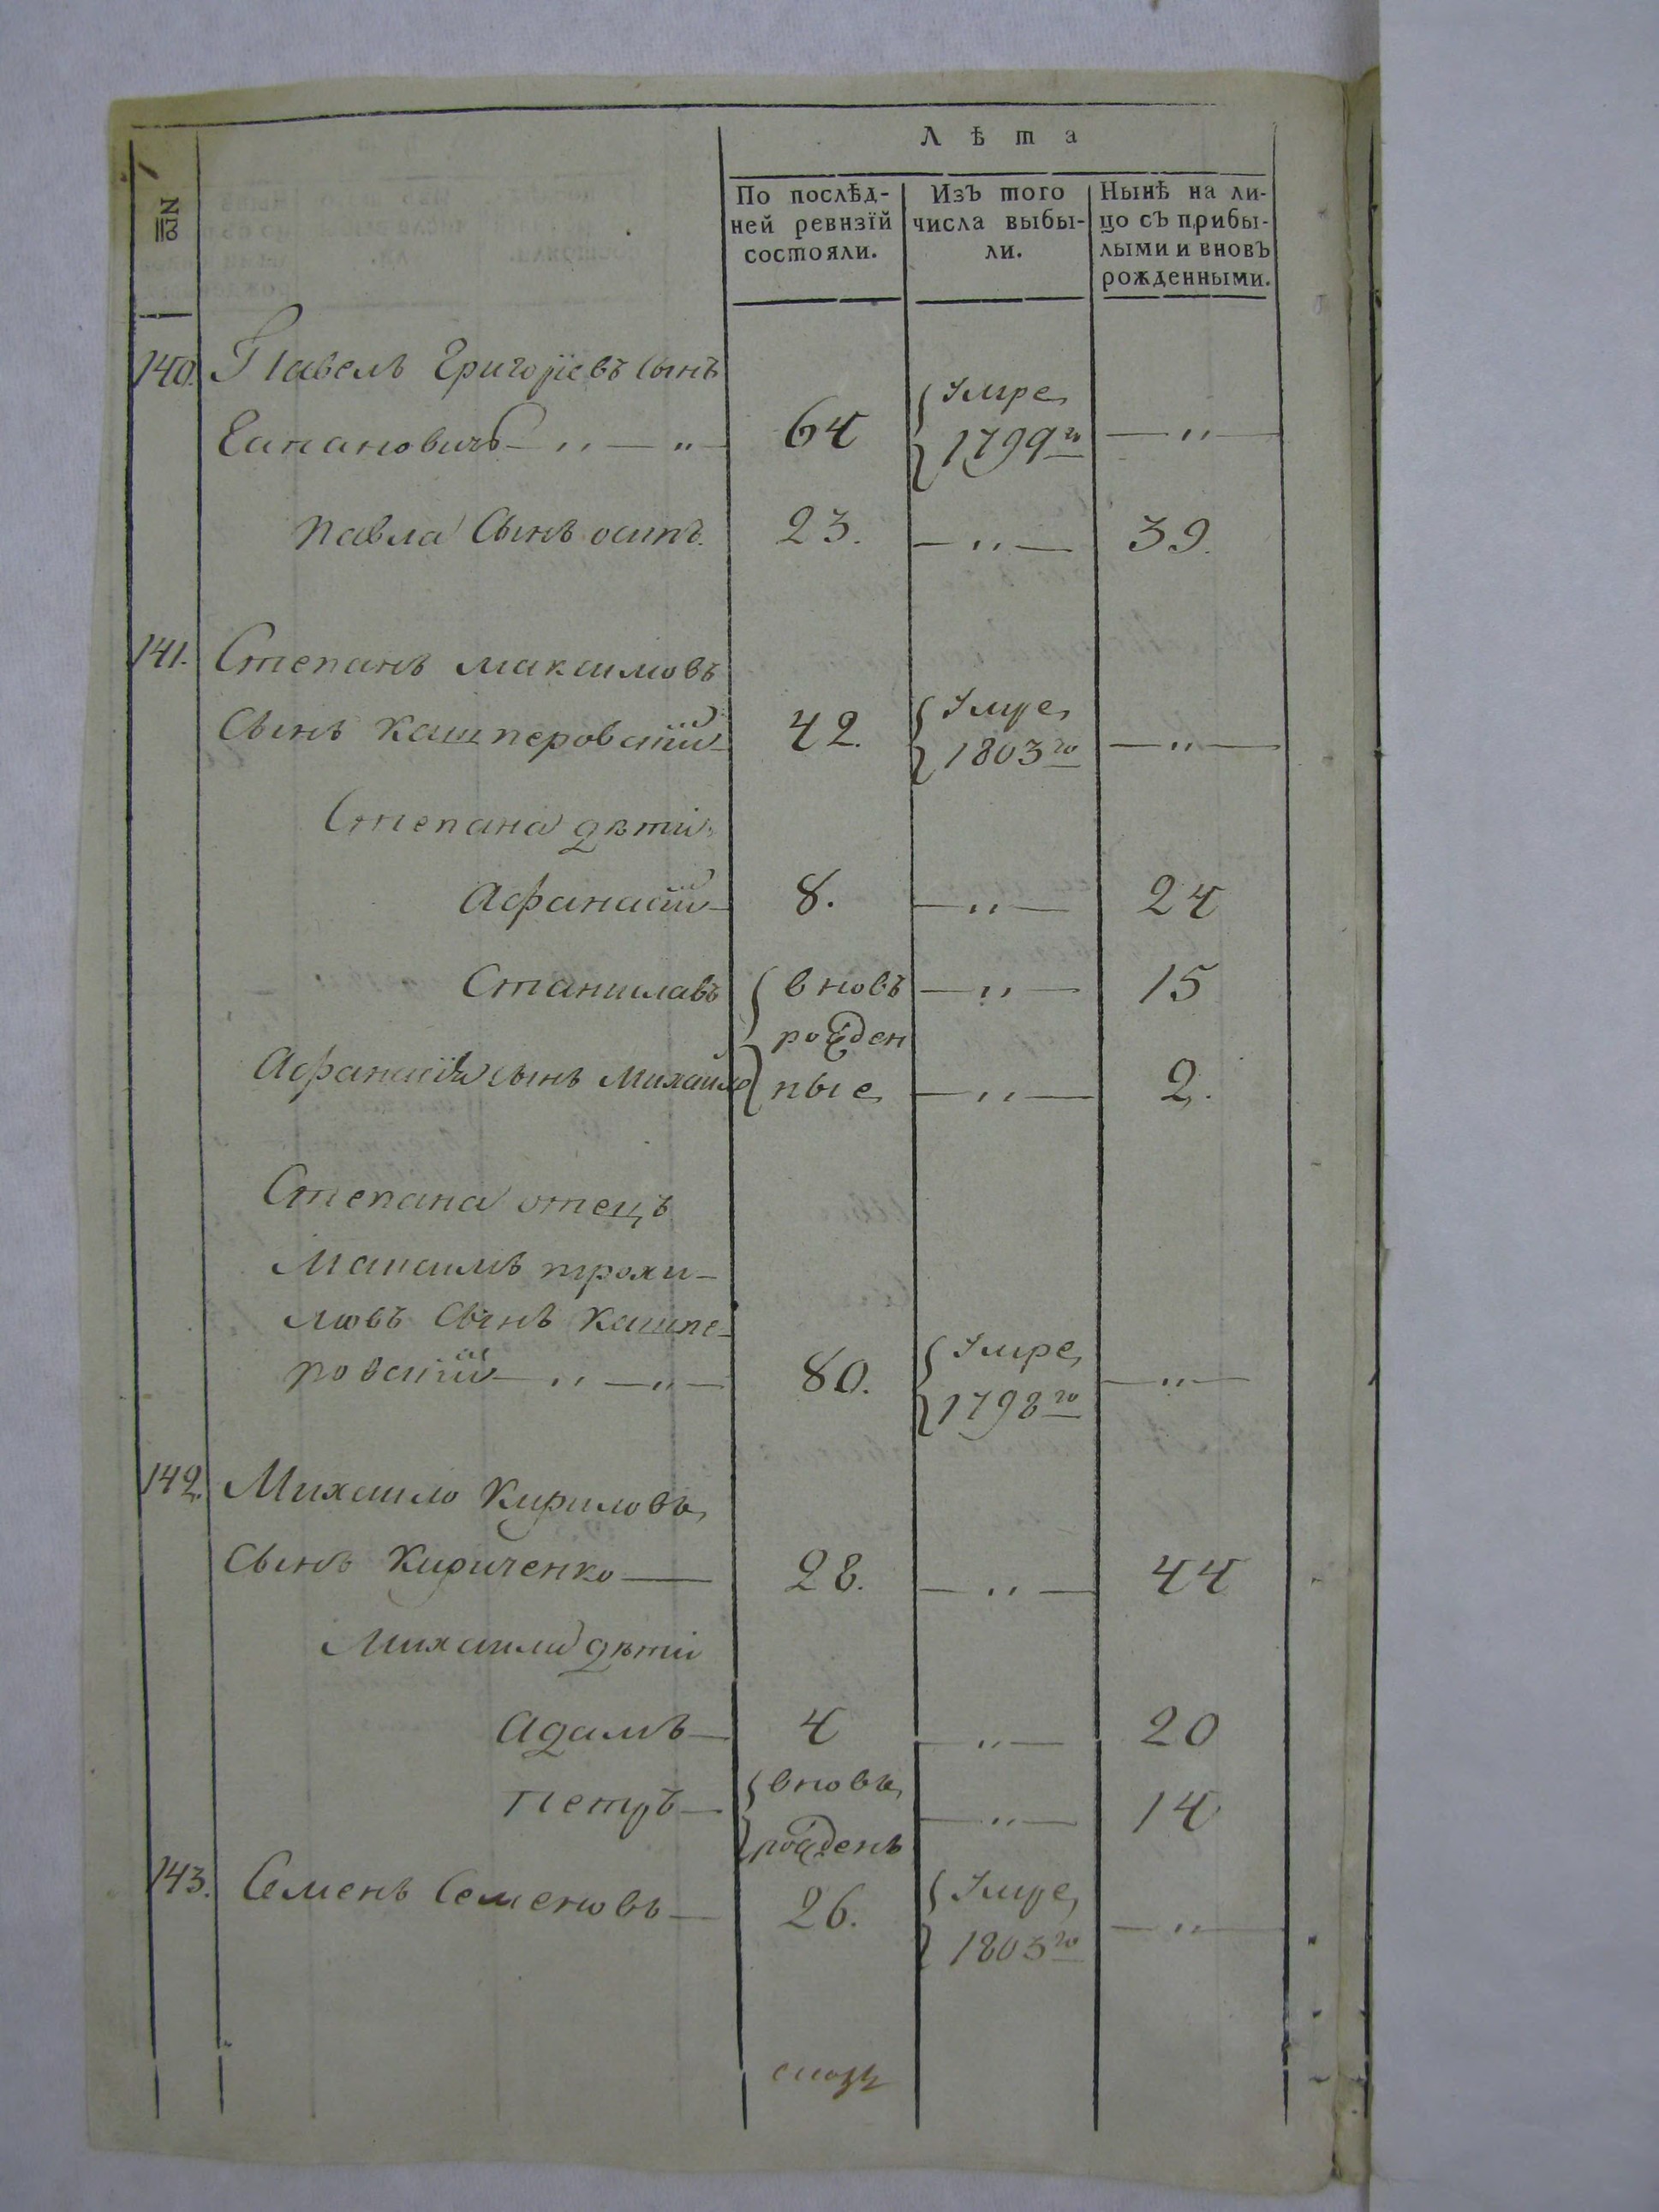 Лѣта
№
По послѣд-
ней ревизїй
состояли.
Изъ того
числа выбы-
ли.
Нынѣ на ли-
цо съ прибы-
лыми и вновь
рожденными.
140. Павелъ Григорїевъ Сынъ
64 Умре
1799го — „ —
Павла Сынъ осипъ. 23. — „ — 39.
141. Степанъ максимовъ
Сынъ кашперовскїй 42. Умре
1803го — „ —
Степана дѣти:
Афанасїй 8. — „ — 24
Станиславъ вновь — „ — 15
рожден
Афанасїя сынъ Михайло ные — „ — 2.
Степана отецъ
Максимъ трохи-
мовъ Сынъ кашпе-
ровскїй — „ — „ — 80. Умре
1798го — „ —
142. Михайло Кириловъ
Сынъ Кириченко — 28. — „ — 44
Михайла дѣти
Адамъ — 4 — „ — 20
Петръ — вновь
рожденъ — „ — 14
143. Семенъ Семеновъ — 26. Умре
1803го — „ —